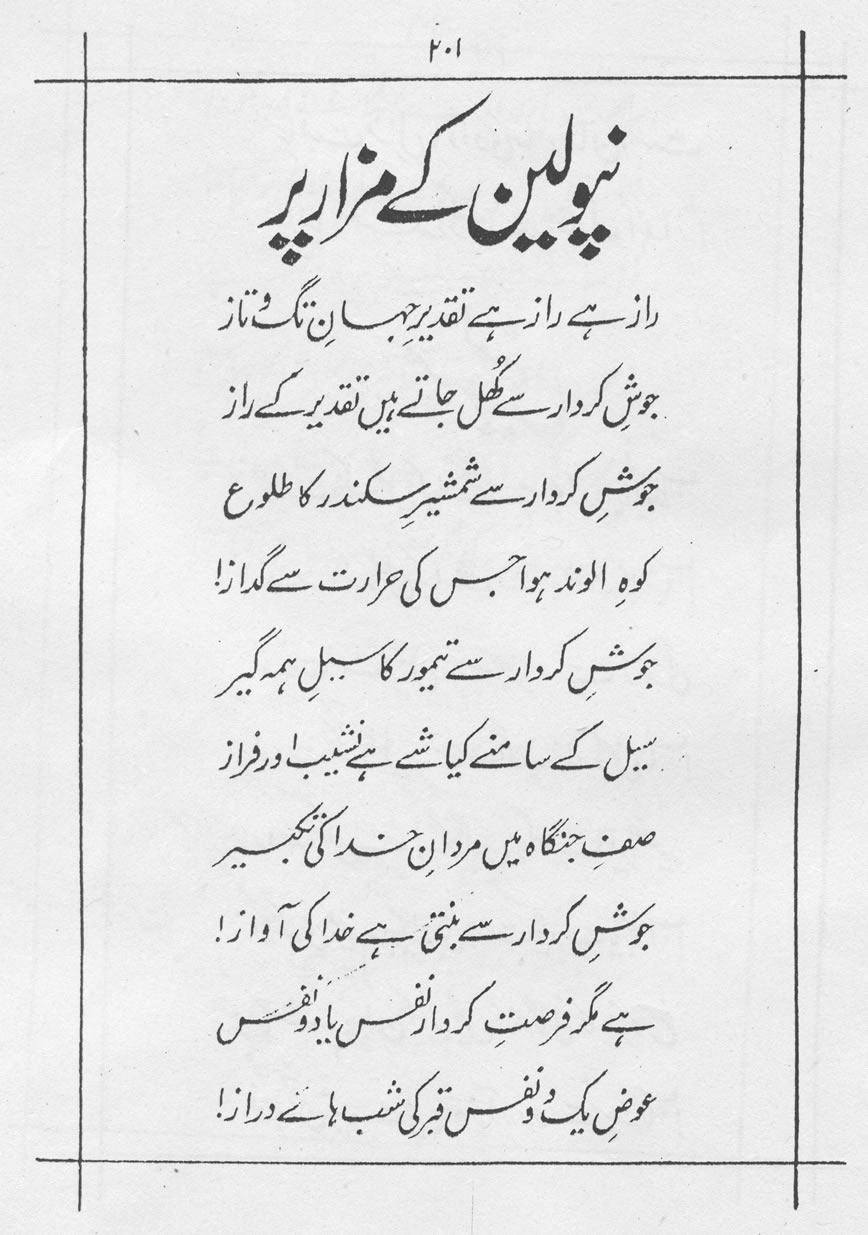 ۲۰۱
نپولین کے مزار پر
راز ہے راز ہے تقدیرِ جہانِ تگ و تاز
جوشِ کردار سے کُھل جاتے ہیں تقدیر کے راز
جوشِ کردار سے شمشیرِ سکندر کا طلوع
کوہِ الوند ہوا جس کی حرارت سے گداز!
جوشِ کردار سے تیمور کا سیلِ ہمہ گیر
سیل کے سامنے کیا شے ہے نشیب اور فراز
صفِ جنگاہ میں مردانِ خدا کی تکبیر
جوشِ کردار سے بنتی ہے خدا کی آواز!
ہے مگر فرصتِ کردار نفس یا دو نفس
عوضِ یک دو نفس قبر کی شب ہائے دراز!